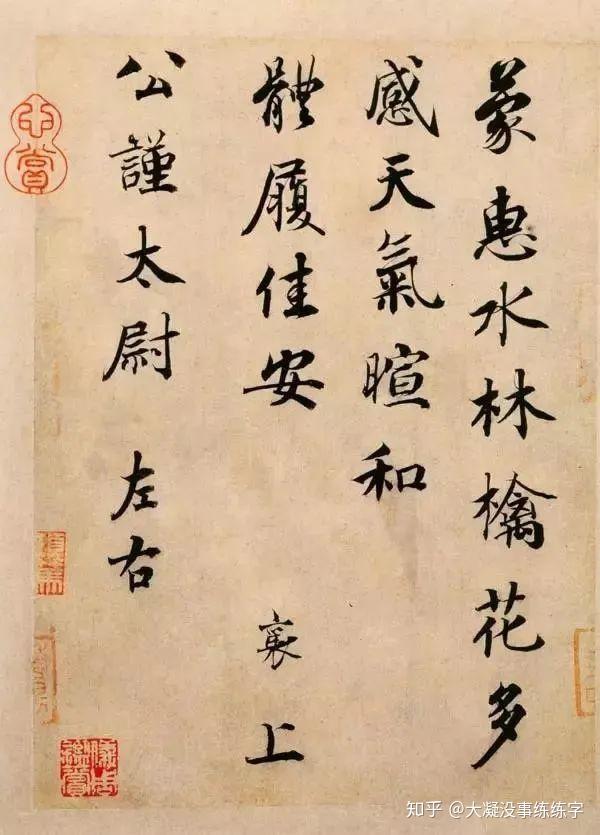 蒙惠水林檎花多
感天氣暄和
體履佳安
襄上
公謹太尉 左右
知乎 @大凝没事练练字